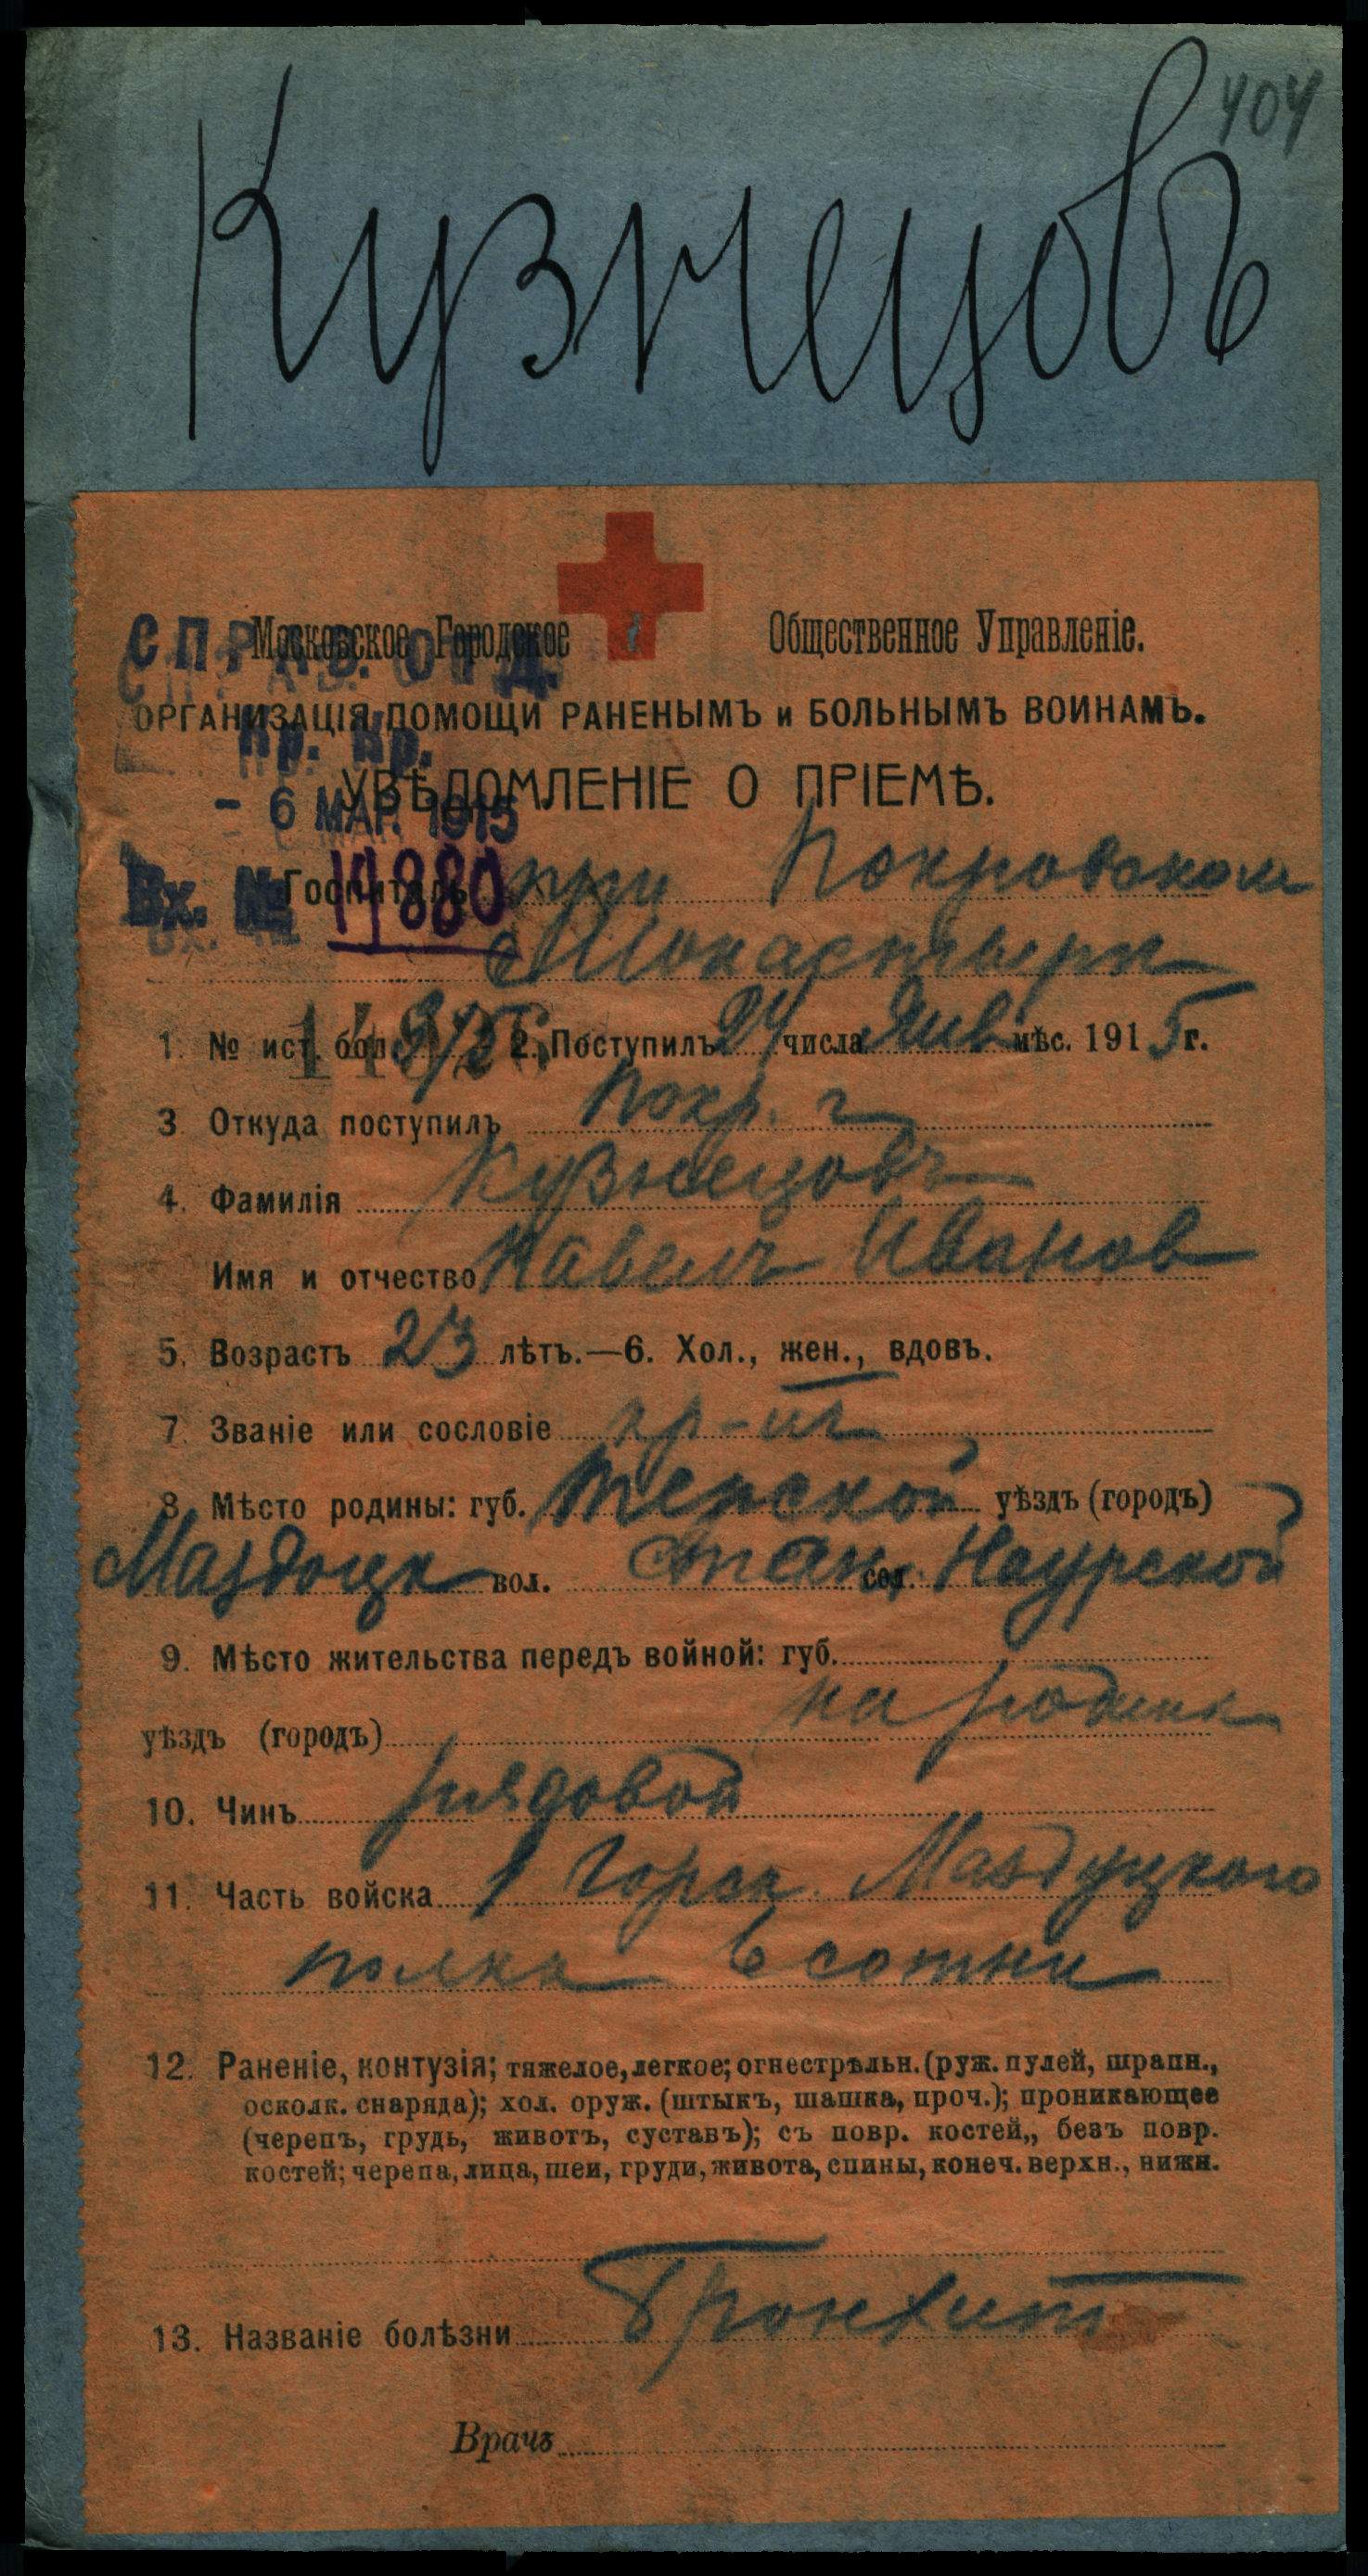 404
Кузнецовъ
Московское Городское Общественное Управленіе.
СПРАВ. ОТД.
ОРГАНИЗАЦІЯ ПОМОЩИ РАНЕНЫМЪ и БОЛЬНЫМЪ ВОИНАМЪ.
Кр. Кр.
УВѢДОМЛЕНІЕ О ПРІЕМѢ.
- 6 МАР. 1915
Вх. №
Госпиталь при Покровском
Монастыри
1. № ист. бол. 2. Поступилъ 24 числа Янв мѣс. 1915 г.
3. Откуда поступилъ Покр. г
4. Фамилія Кузнецовъ
Имя и отчество Павелъ Иванов
5. Возрастъ 23 лѣтъ.—6. Хол., жен., вдовъ.
7. Званіе или сословіе кр-нъ
8. Мѣсто родины: губ. Терской уѣздъ (городъ)
Маздоцк вол. стан. сел. Наурской
9. Мѣсто жительства передъ войной: губ.
на родинѣ
уѣздъ (городъ)
10. Чинъ рядовой
11. Часть войска 1 Горск. Маздуцкого
полка 6 сотни
12. Раненіе, контузія; тяжелое, легкое; огнестрѣльн. (руж. пулей, шрапн.,
осколк. снаряда); хол. оруж. (штыкъ, шашка, проч.); проникающее
(черепъ, грудь, животъ, суставъ); съ повр. костей,, безъ повр.
костей; черепа, лица, шеи, груди, живота, спины, конеч. верхн., нижн.
13. Названіе болѣзни Бронхит
Врачъ